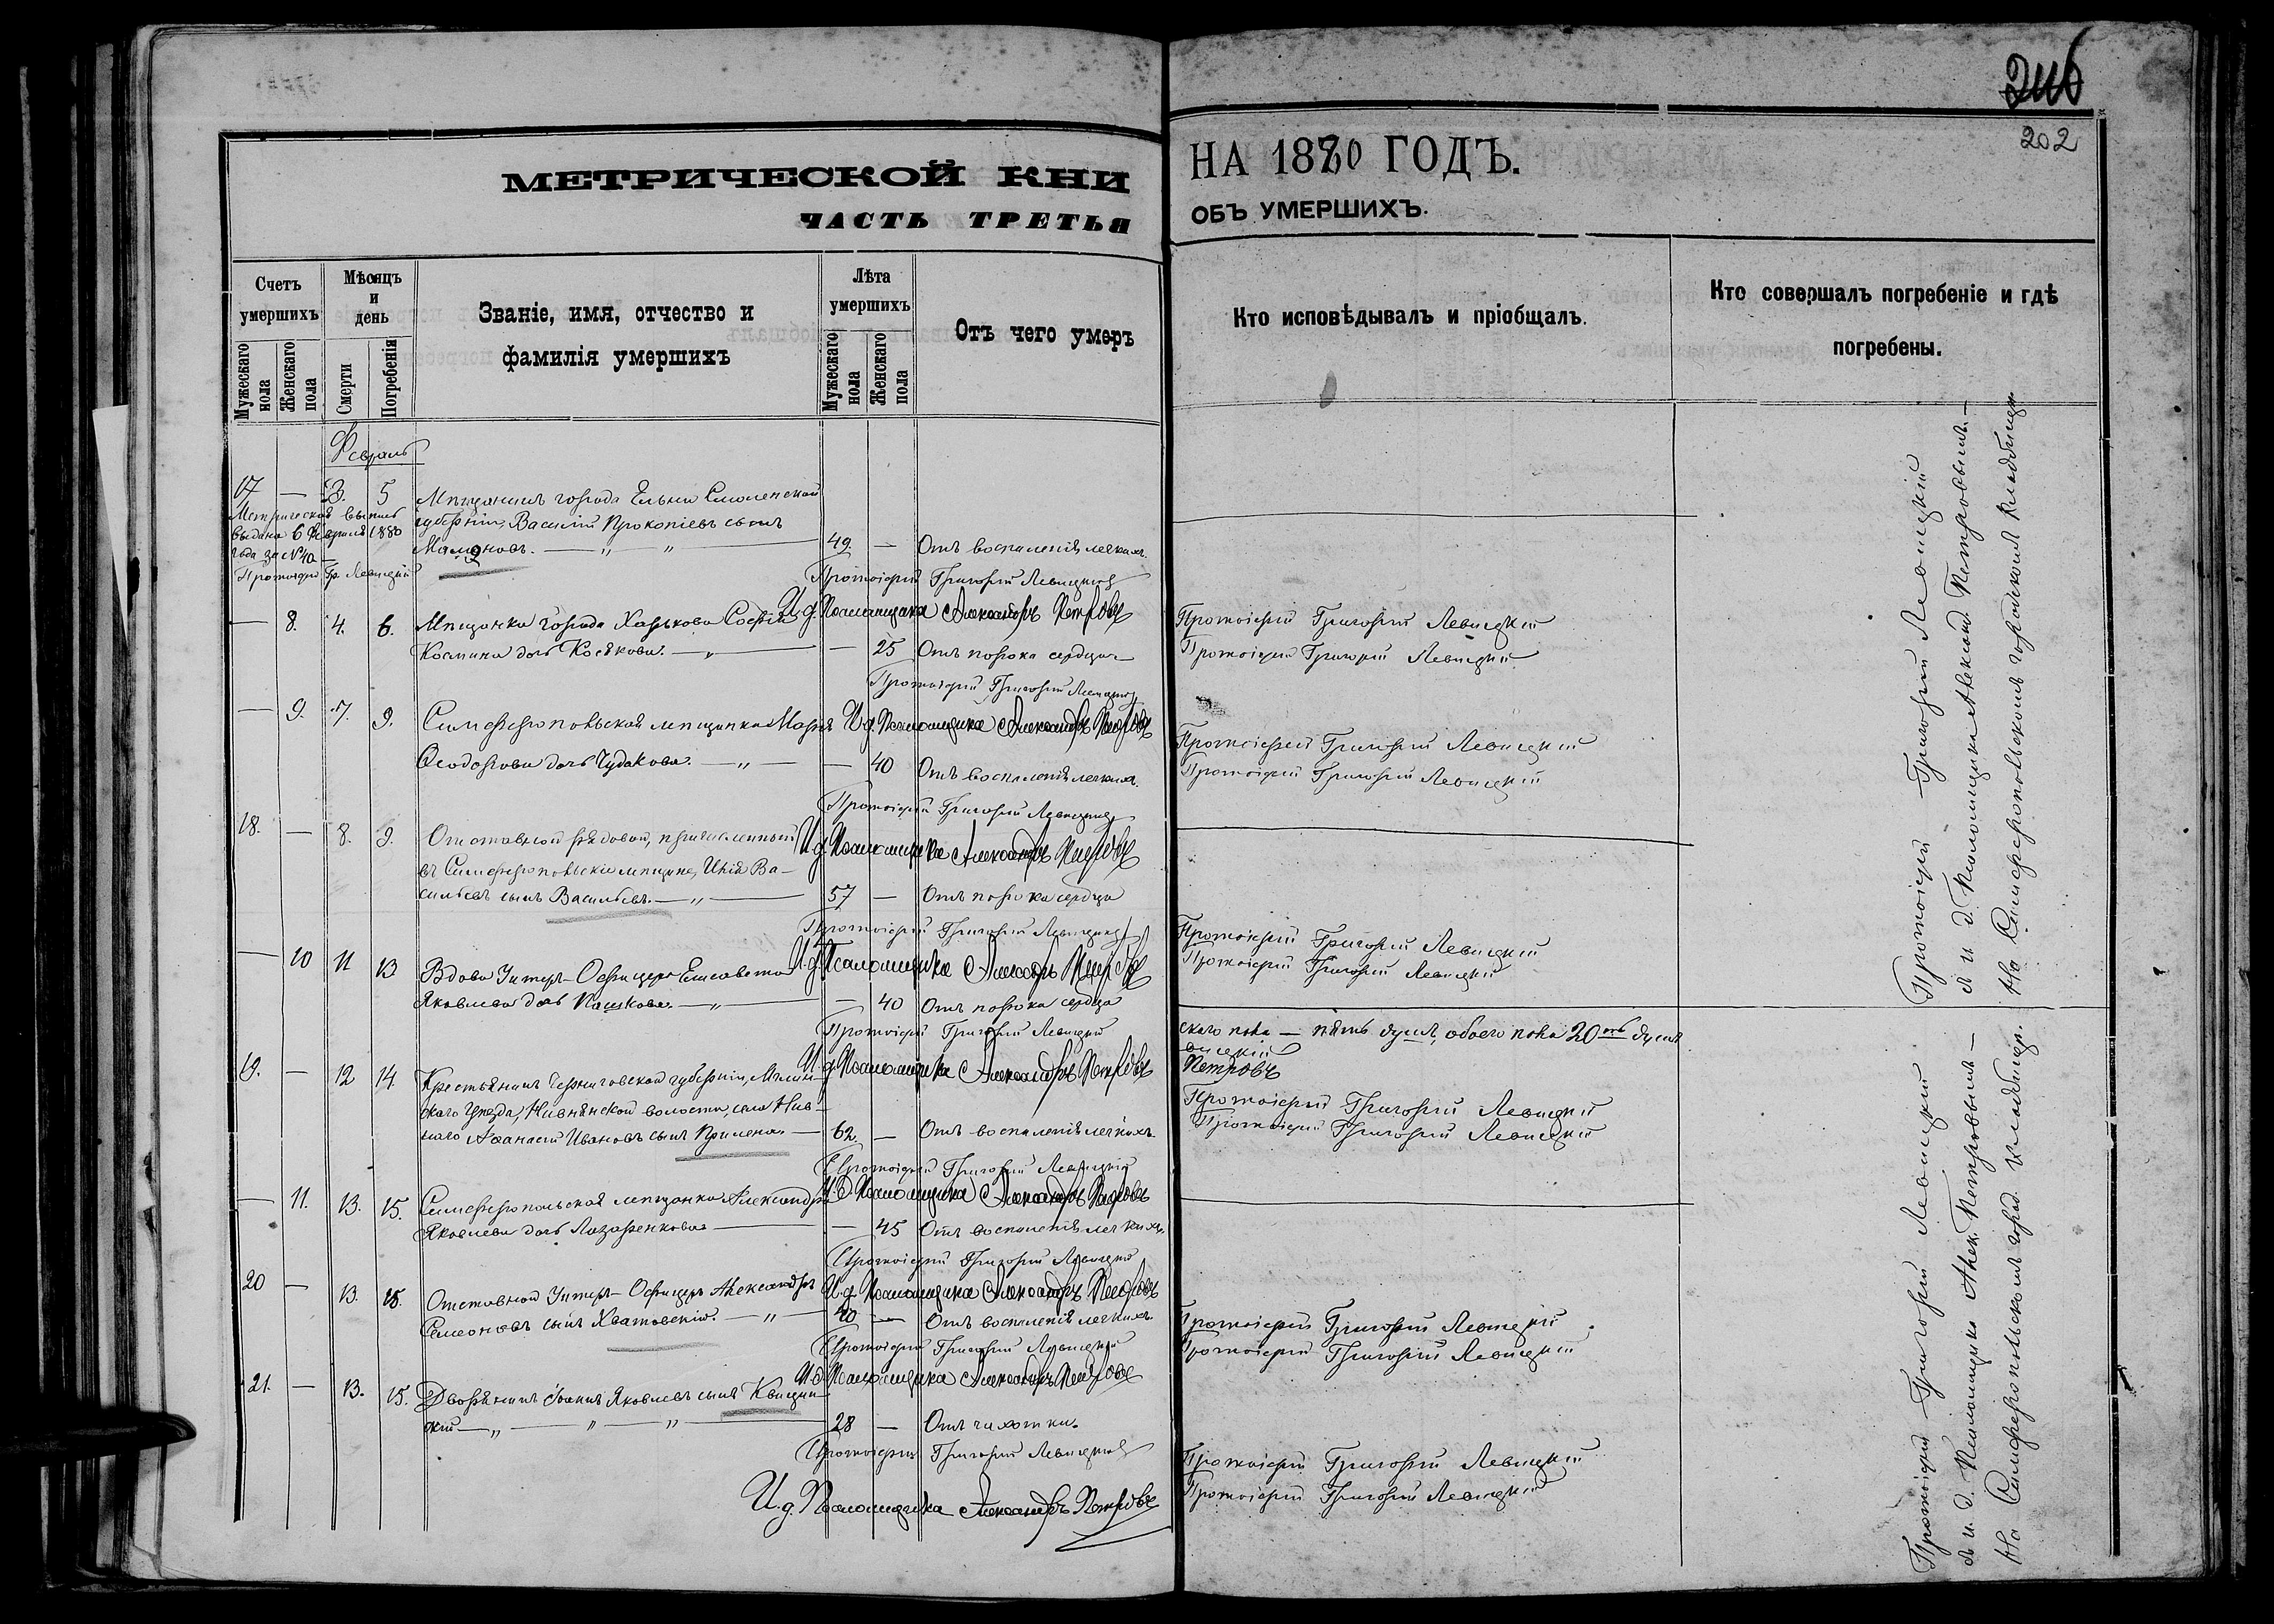 246
202
МЕТРИЧЕСКОЙ КНИ
НА 1880 ГОДЪ.
ЧАСТЬ ТРЕТЬЯ
ОБЪ УМЕРШИХЪ.
Счетъ умершихъ
Мужескаго пола
Женскаго пола
Мѣсяцъ и день
Смерти
Погребенія
Званіе, имя, отчество и фамилія умершихъ
Лѣта умершихъ
Мужескаго пола
Женскаго пола
Отъ чего умеръ
Кто исповѣдывалъ и пріобщалъ.
Кто совершалъ погребеніе и гдѣ погребены.
Февраль
17 — 3. 5 Мѣщанинъ города Ельни Смоленской
губерніи, Василій Прокопіевъ сынъ
Мамоновъ. — „ — „ — 49. — Отъ воспаленія легкихъ.
Метрическая выпись
выдана 6 Февраля 1880
года за № 40
Протоіерей Гр. Левицкій
Протоіерей Григорій Левицкій
И. д. Псаломщика Александръ Петровъ
— 8. 4. 6. Мѣщанка города Харькова Софія
Космина дочь Косякова. — „ — — 25 Отъ порока сердца
Протоіерей Григорій Левицкій
И. д. Псаломщика Александръ Петровъ
— 9. 7. 9. Симферопольская мѣщанка Марія
Ѳеодорова дочь Чудакова. — „ — — 40 Отъ воспаленія легкихъ.
Протоіерей Григорій Левицкій
И. д. Псаломщика Александръ Петровъ
18. — 8. 9. Отставной рядовой, причисленный
въ Симферопольскіе мѣщане, Илія Ва-
сильевъ сынъ Васильевъ. — „ — 57 — Отъ порока сердца
Протоіерей Григорій Левицкій
И. д. Псаломщика Александръ Петровъ
— 10 11 13 Вдова Унтеръ-Офицера Елисавета
Яковлева дочь Пашкова. — „ — — 40 Отъ порока сердца
Протоіерей Григорій Левицкій
И. д. Псаломщика Александръ Петровъ
19. — 12 14. Крестьянинъ Черниговской губерніи, Мглин-
скаго Уѣзда, Нивнянской волости, села Нив-
наго Аѳанасій Ивановъ сынъ — 62. — Отъ воспаленія легкихъ.
Протоіерей Григорій Левицкій
И. д. Псаломщика Александръ Петровъ
— 11. 13. 15. Симферопольская мѣщанка Александра
Яковлева дочь Лазаренкова — — 45 Отъ воспаленія легкихъ.
Протоіерей Григорій Левицкій
И. д. Псаломщика Александръ Петровъ
20 — 13. 15. Отставной Унтеръ-Офицеръ Александръ
Семеновъ сынъ Хватовскій. — „ — 40 — Отъ воспаленія легкихъ
Протоіерей Григорій Левицкій
И. д. Псаломщика Александръ Петровъ
21. — 13. 15. Дворянинъ Іоаннъ Яковлевъ сынъ Квицин-
скій — „ — „ — „ — 28 — Отъ чахотки.
Протоіерей Григорій Левицкій
И. д. Псаломщика Александръ Петровъ
Протоіерей Григорій Левицкій
Протоіерей Григорій Левицкій
Протоіерей Григорій Левицкій
Протоіерей Григорій Левицкій
Протоіерей Григорій Левицкій
Протоіерей Григорій Левицкій
скаго пола — пять душъ, обоего пола 20ть душъ
вицкій
Петровъ
Протоіерей Григорій Левицкій
Протоіерей Григорій Левицкій
Протоіерей Григорій Левицкій
Протоіерей Григорій Левицкій
Протоіерей Григорій Левицкій
Протоіерей Григорій Левицкій
Протоіерей Григорій Левицкій
съ и. д. Псаломщика Александ. Петровымъ. —
На Симферопольскомъ городскомъ кладбищѣ.
Протоіерей Григорій Левицкій
съ и. д. Псаломщика Алек. Петровымъ —
На Симферопольскомъ город. кладбищѣ.